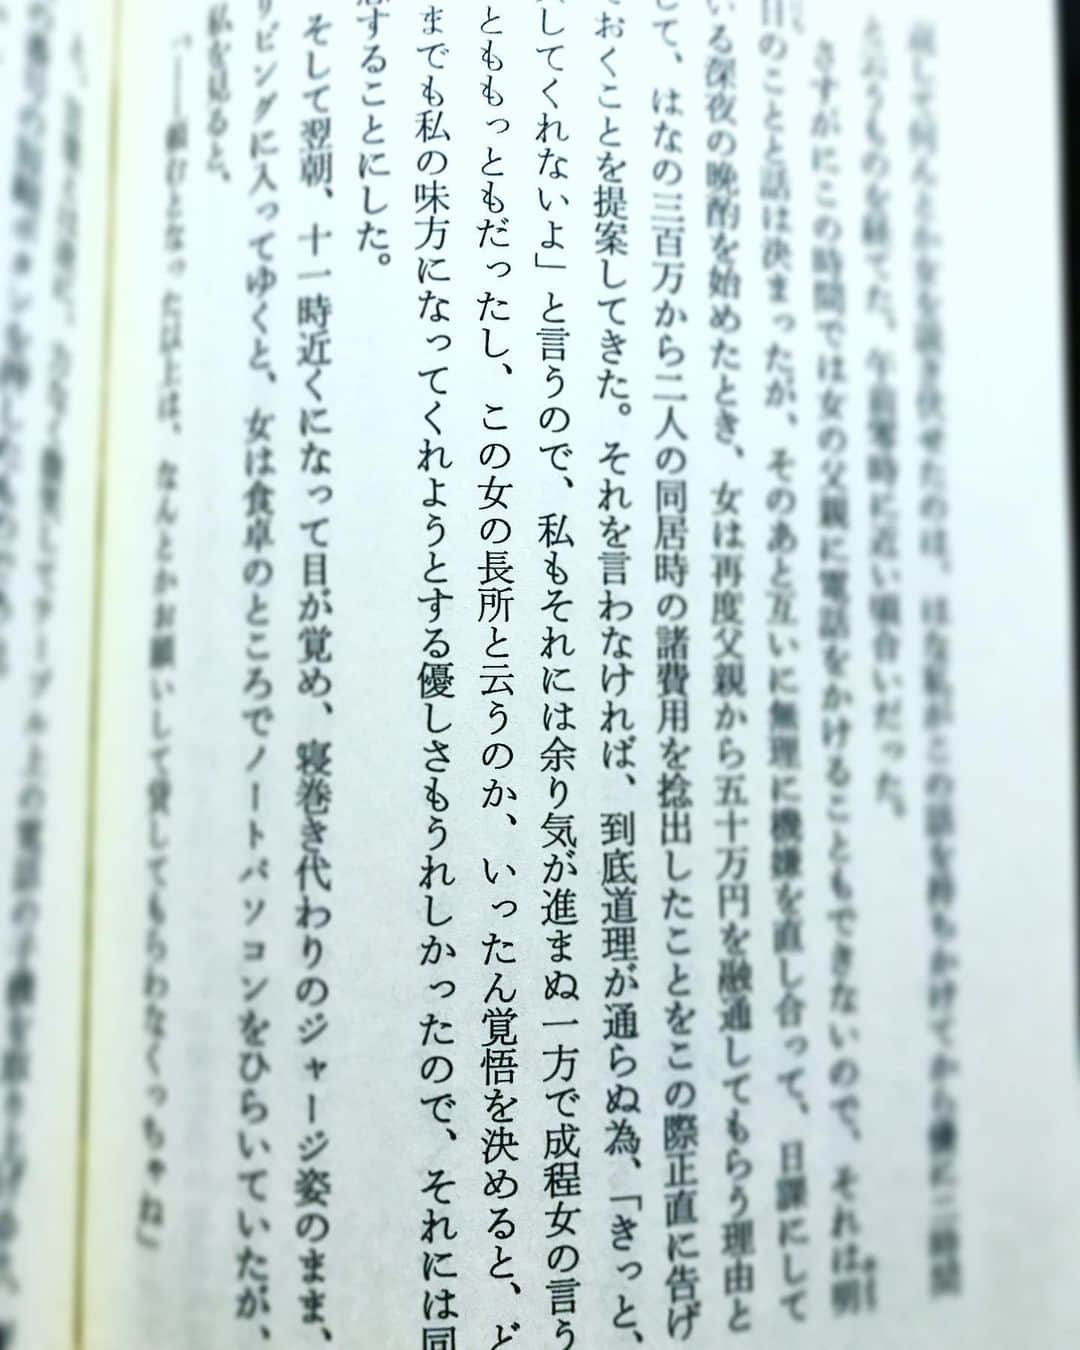 と云うものを経てた。午前零時に近い頃合いだった。
さすがにこの時間では女の父親に電話をかけることもできないので、それは明
日のことと話は決まったが、そのあと互いに無理に機嫌を直し合って、日課にして
いる深夜の晩酌を始めたとき、女は再度父親から五十万円を融通してもらう理由と
して、はなの三百万から二人の同居時の諸費用を捻出したことをこの際正直に告げ
おくことを提案してきた。それを言わなければ、到底道理が通らぬ為、「きっと、
してくれないよ」と言うので、私もそれには余り気が進まぬ一方で成程女の言う
ともっともだったし、この女の長所と云うのか、いったん覚悟を決めると、ど
までも私の味方になってくれようとする優しさもうれしかったので、それには同
することにした。
そして翌朝、十一時近くになって目が覚め、寝巻き代わりのジャージ姿のまま、
リビングに入ってゆくと、女は食卓のところでノートパソコンをひらいていたが、
私を見ると、
「――頼むとなった以上は、なんとかお願いして貸してもらわなくっちゃね」